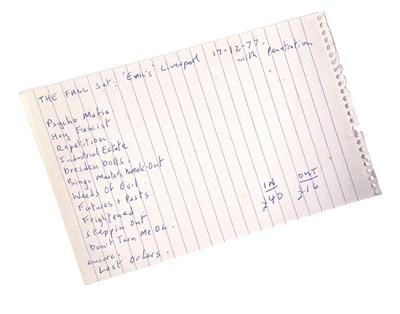 THE FALL Set: 'Eric's' Liverpool 17-12-77.
with Penetration.
Psycho Mafia
Hey Fascist
Repetition
Industrial Estate
Dresden Dolls.
Bingo Masters Break-Out
Words Of Evil
Futures + Pasts
Frightened
Steppin Out
Don't Turn Me On.
encore.
Last Orders.
IN OUT
£40 £16